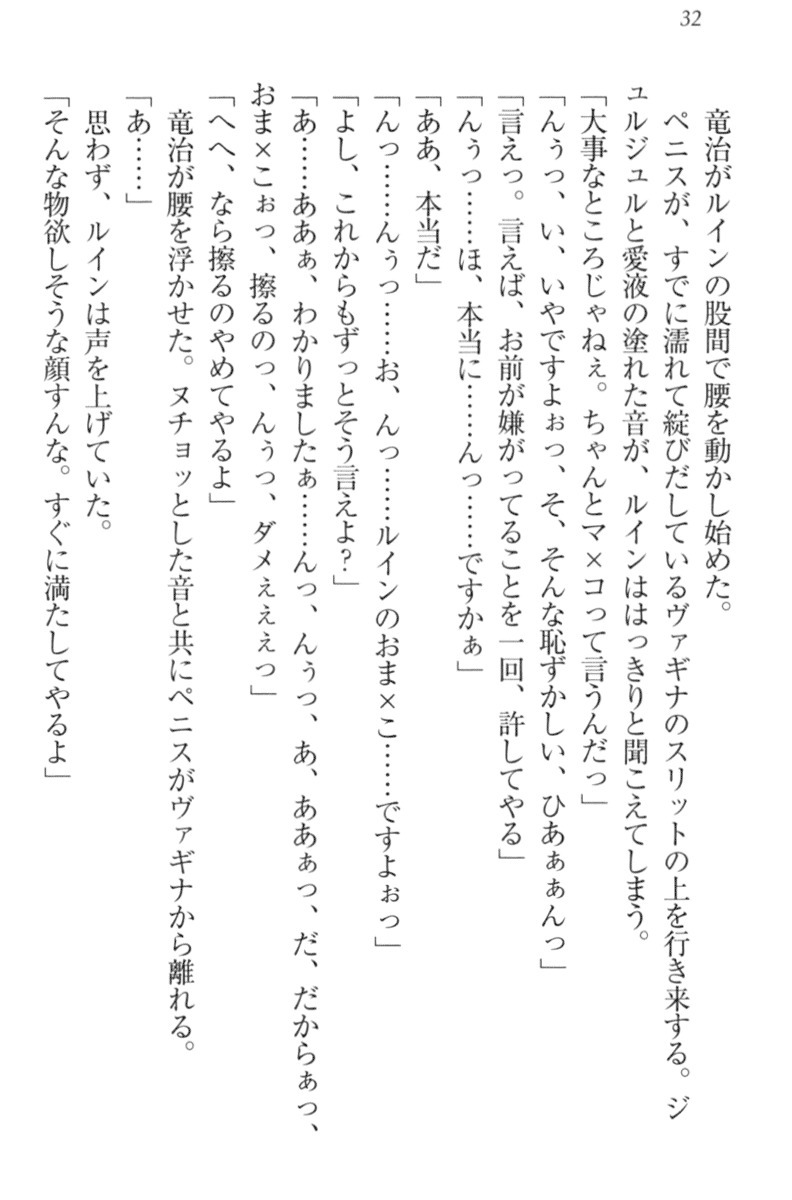 32
竜治がルインの股間で腰を動かし始めた。
ペニスが、すでに濡れて綻びだしているヴァギナのスリットの上を行き来する。ジ
ュルジュルと愛液の塗れた音が、ルインははっきりと聞こえてしまう。
「大事なところじゃねぇ。ちゃんとマ×コって言うんだっ」
「んぅっ、い、いやですよぉっ、そ、そんな恥ずかしい、ひあぁぁんっ」
「言えっ。言えば、お前が嫌がってることを一回、許してやる」
「んぅっ……ほ、本当に……んっ……ですかぁ」
「ああ、本当だ」
「んっ……んぅっ……お、んっ……ルインのおま×こ……ですよぉっ」
「よし、これからもずっとそう言えよ?」
「あ……ああぁ、わかりましたぁ……んっ、んぅっ、あ、ああぁっ、だ、だからぁっ、
おま×こぉっ、擦るのっ、んぅっ、ダメぇぇぇっ」
「へへ、なら擦るのやめてやるよ」
竜治が腰を浮かせた。ヌチョッとした音と共にペニスがヴァギナから離れる。
「あ……」
思わず、ルインは声を上げていた。
「そんな物欲しそうな顔すんな。すぐに満たしてやるよ」